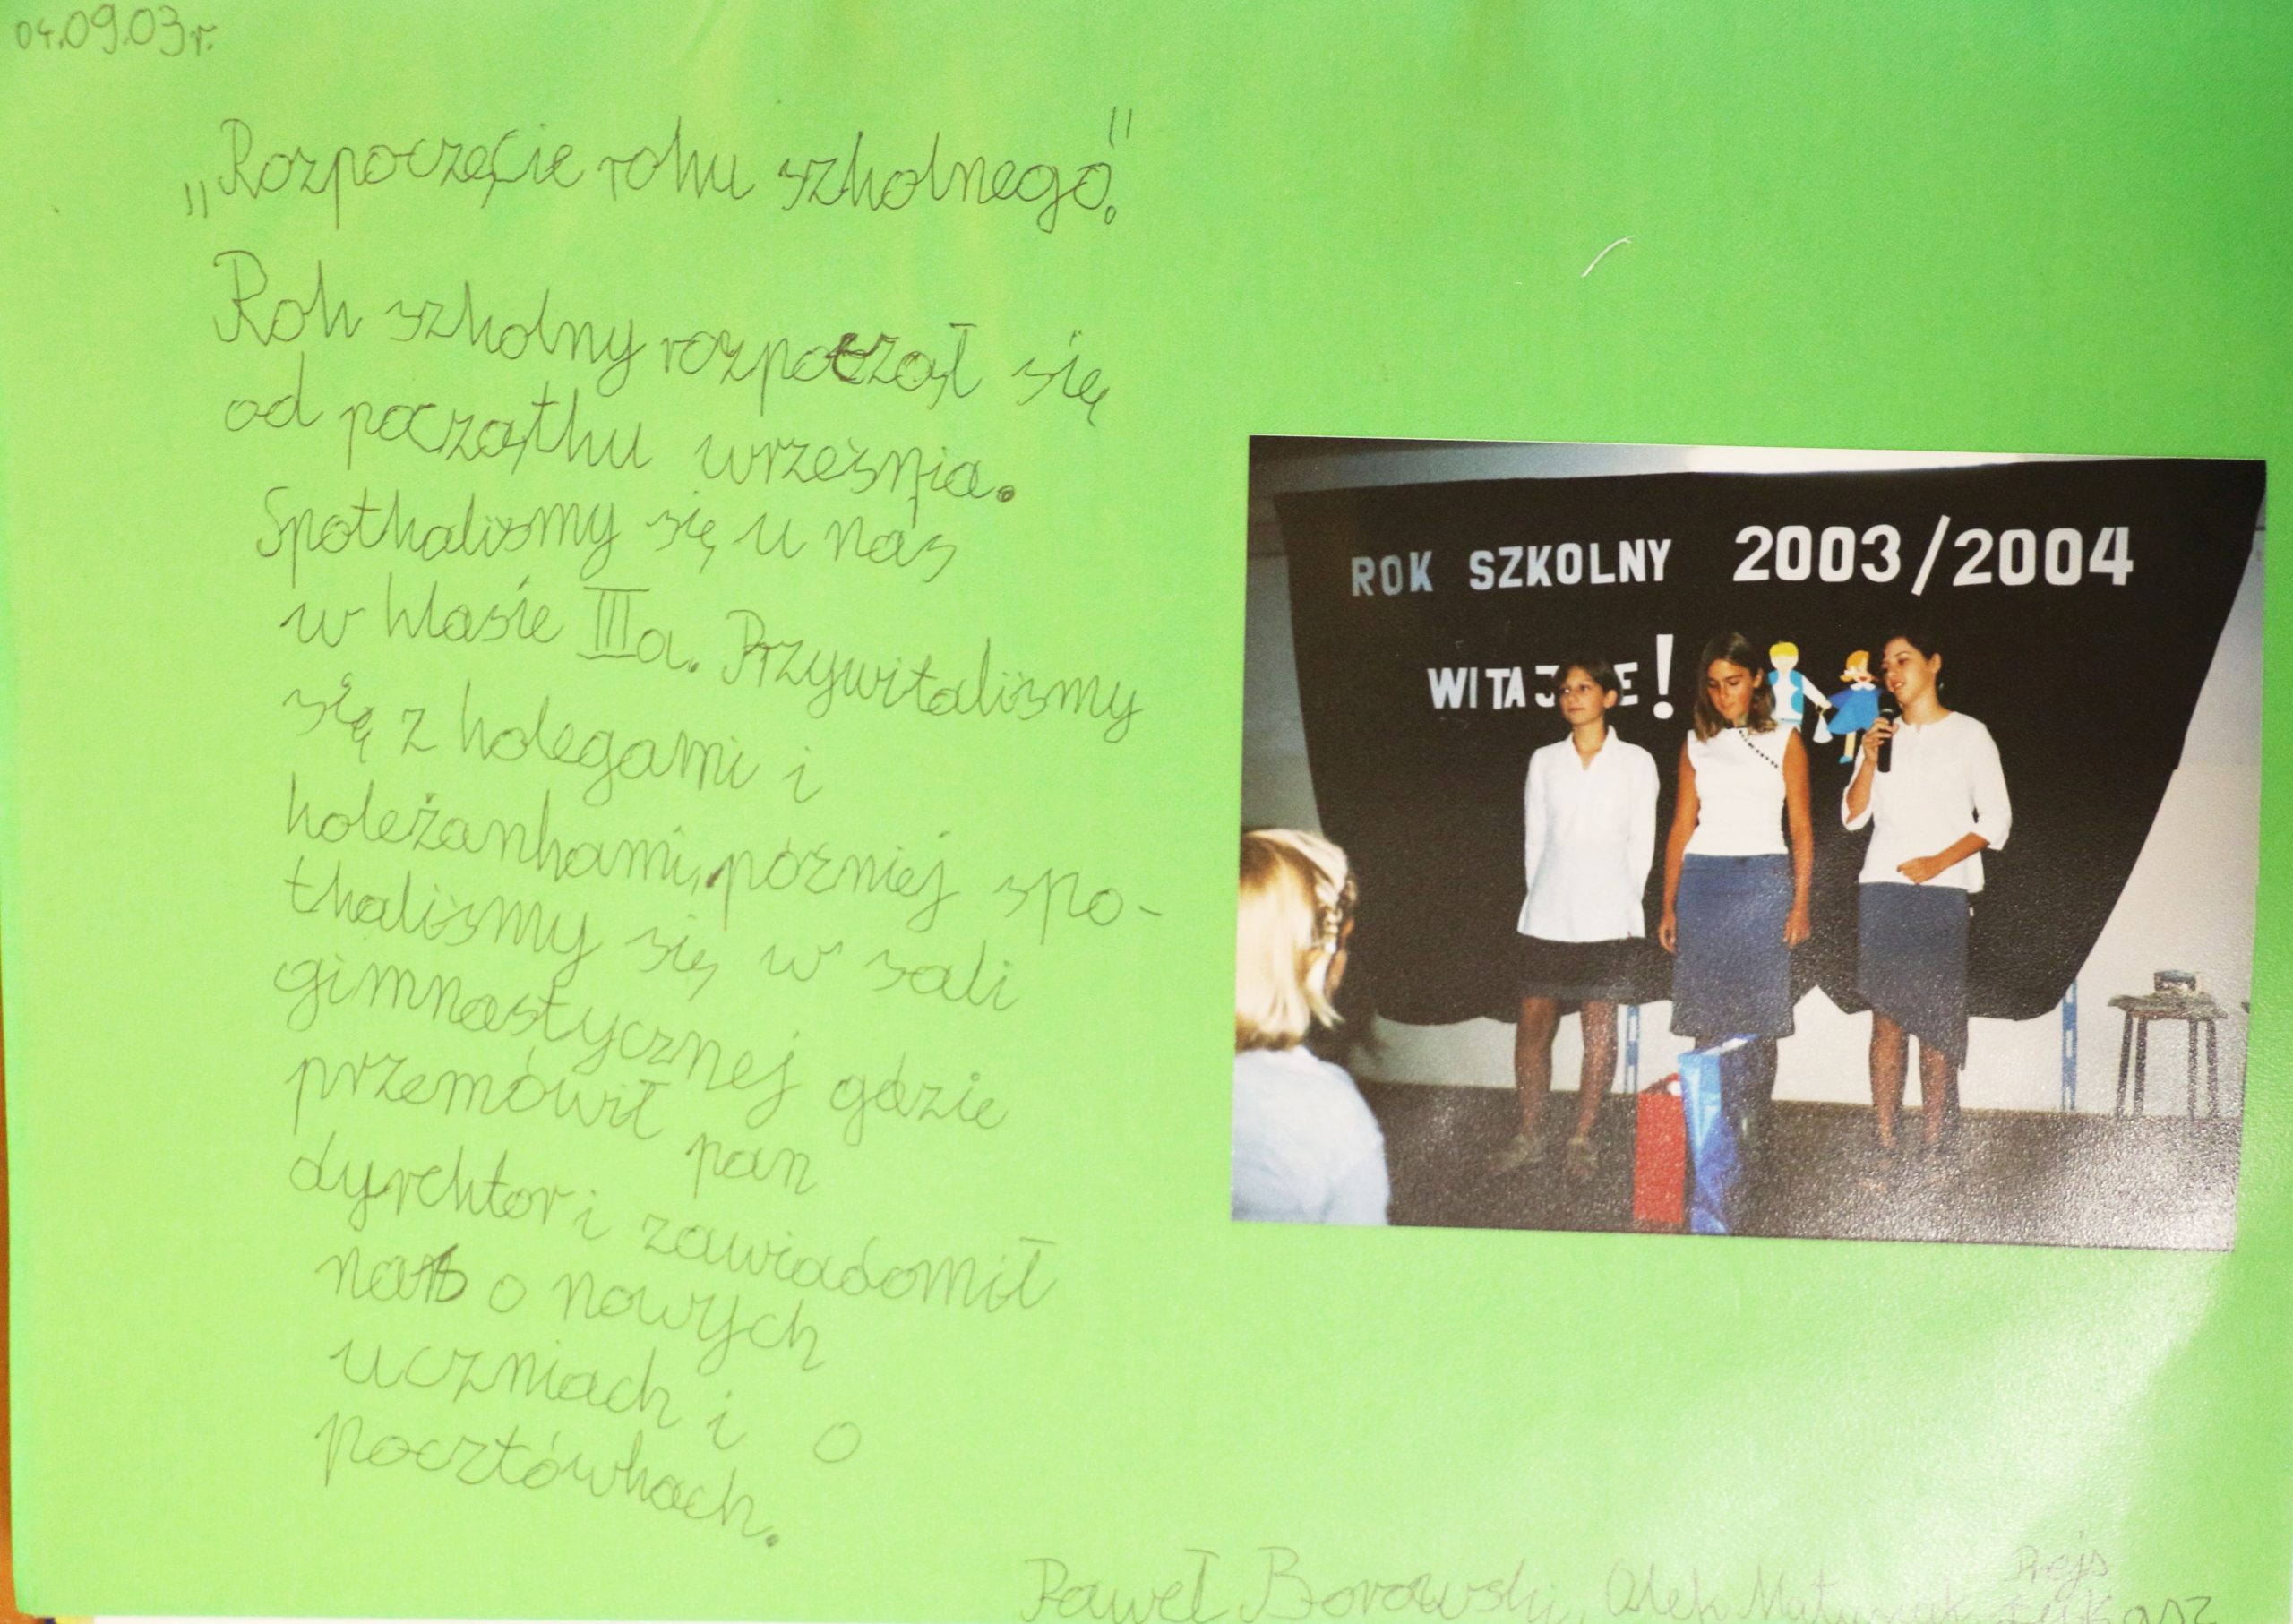 04.09.03r.
„Rozpoczęcie roku szkolnego."
Rok szkolny rozpoczął się
od początku września.
Spotkaliśmy się u nas
w klasie IIIa. Przywitaliśmy
się z kolegami i
koleżankami, później spo-
tkaliśmy się w sali
gimnastycznej gdzie
przemówił pan
dyrektor i zawiadomił
nas o nowych
uczniach i o
pocztówkach.
ROK SZKOLNY 2003/2004
WITAJ E!
Paweł Borowski, Olek
Rejs